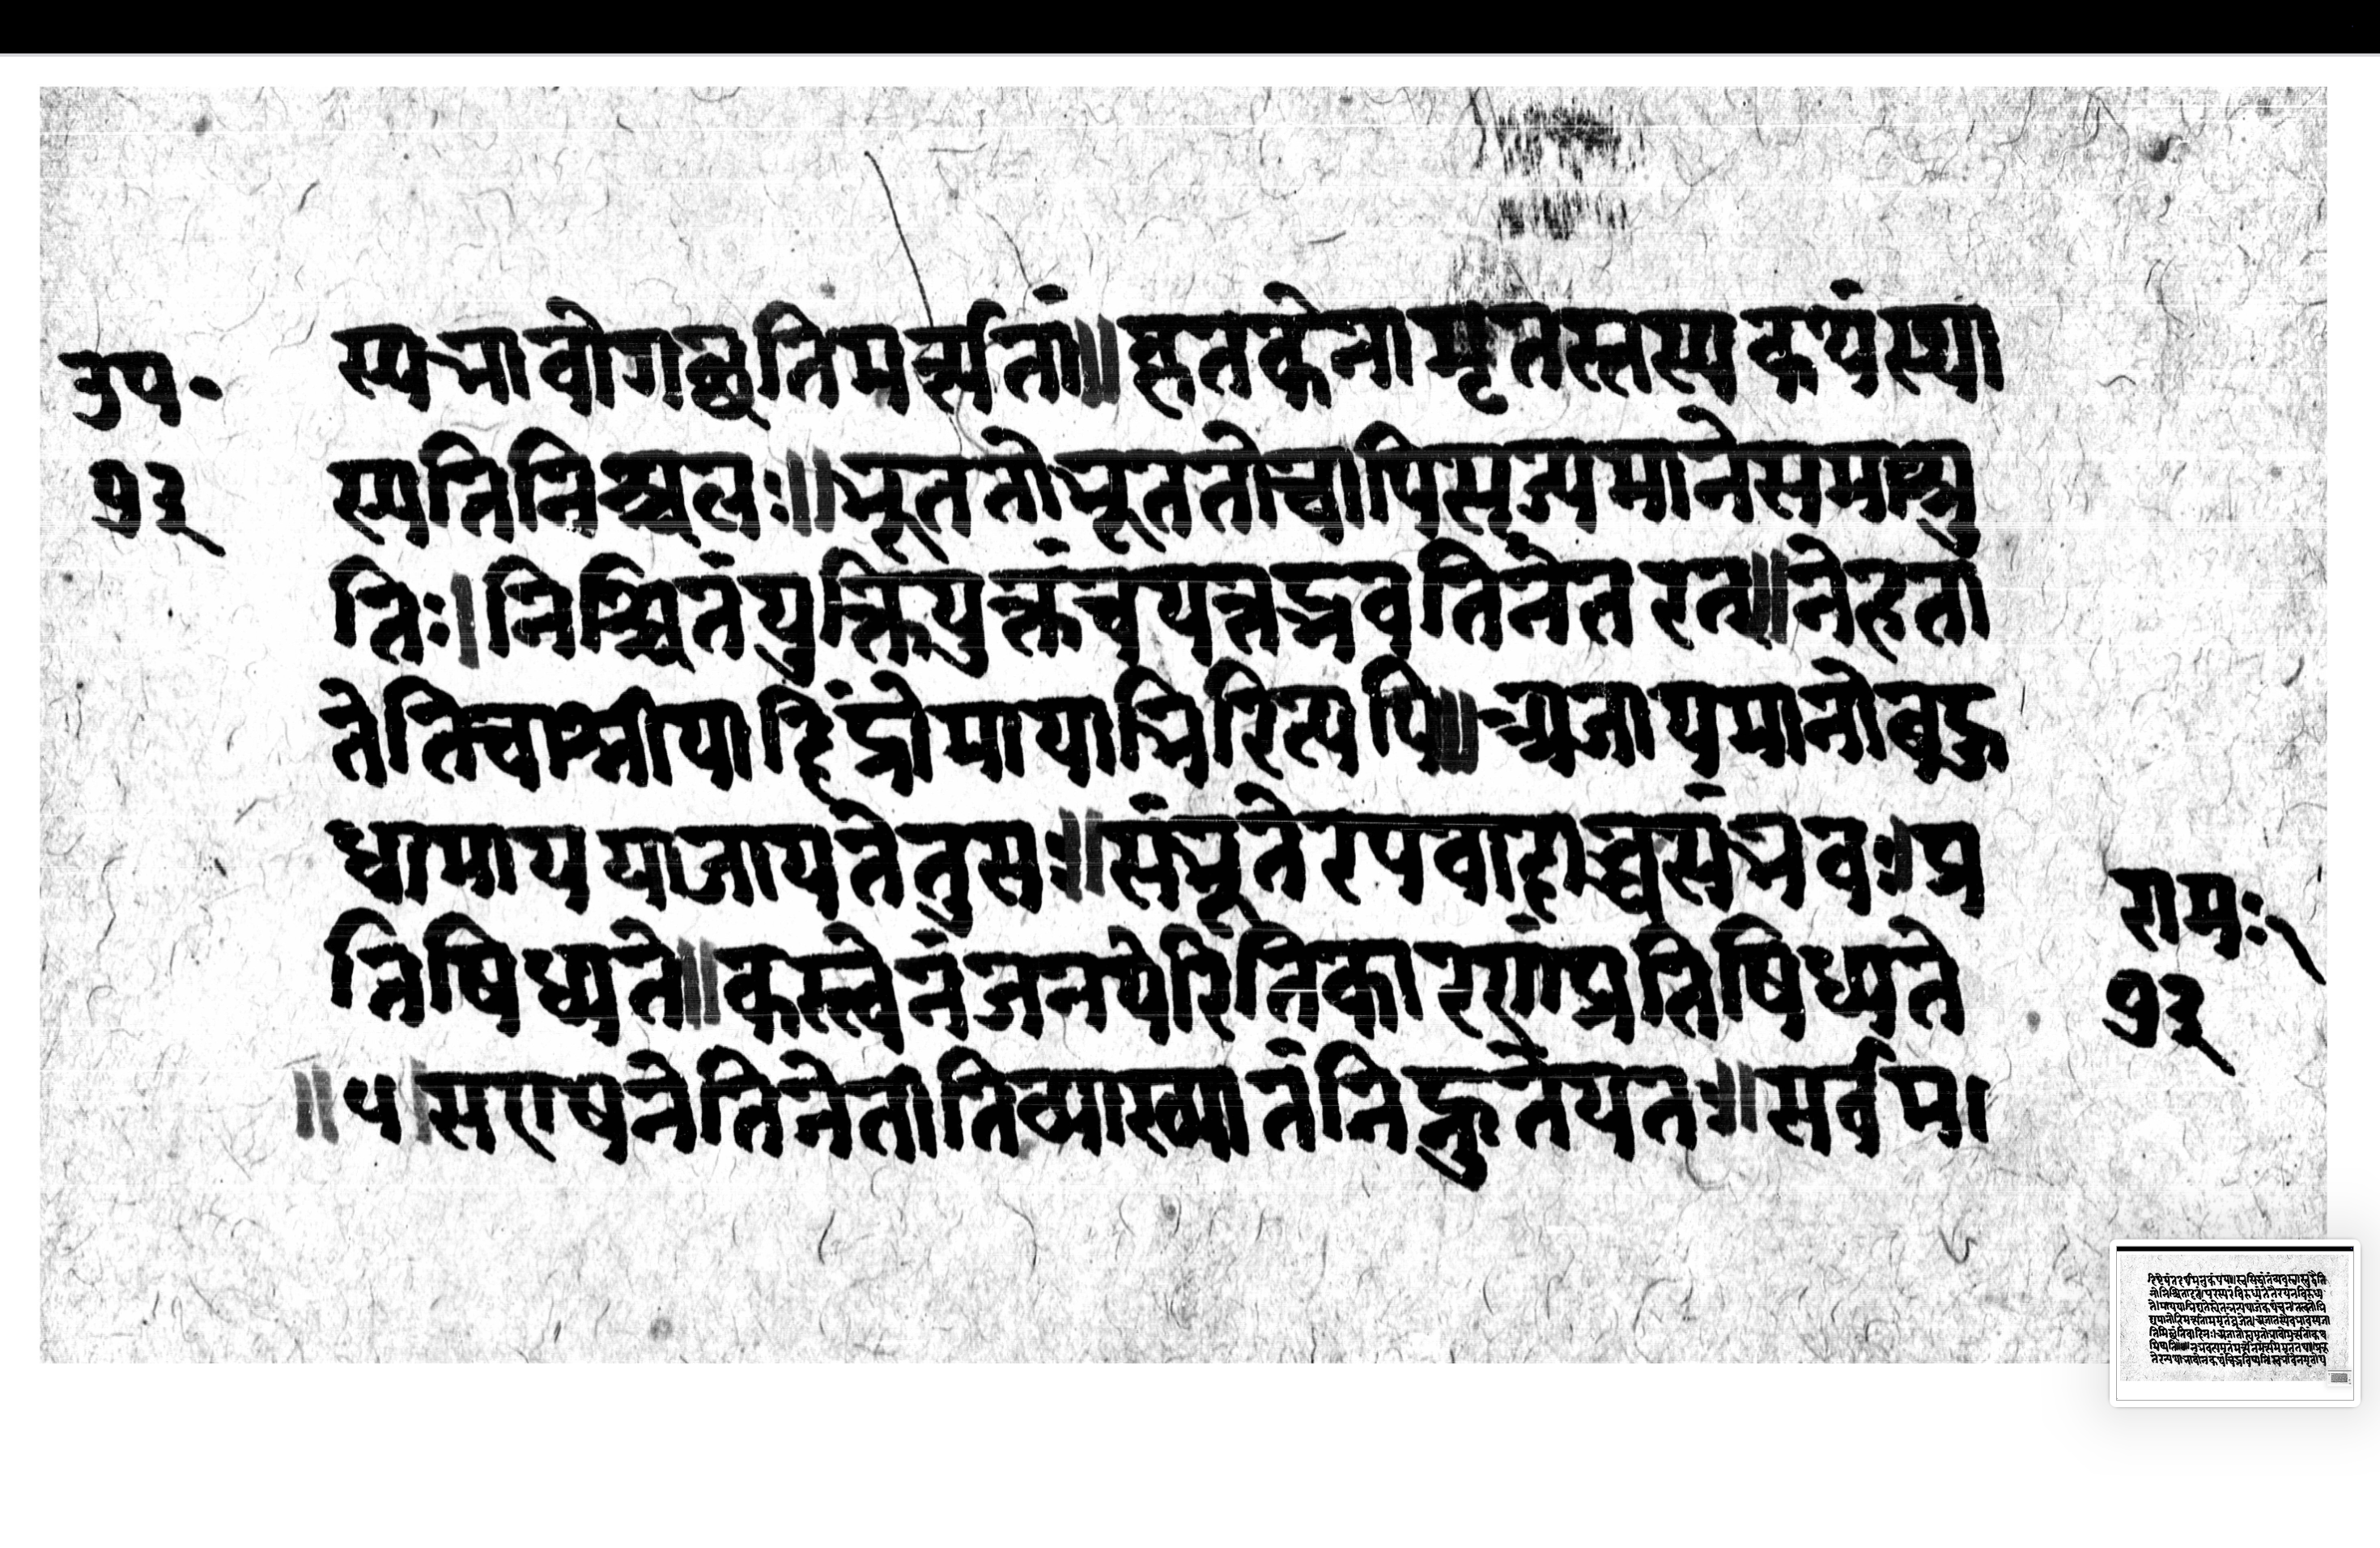 उप॰
१३
स्यभावोगच्छतिमर्त्यतां॥कृतकेनामृतस्तस्यकथंस्था
स्यतिनिश्चलः॥भूततोभूततोवापिसृज्यमानेसमाश्रु
तिः।निश्चितंयुक्तियुक्तंचयत्तद्भवतिनेतरत्॥नेहना
नेतिचाम्नीयादिंद्रोमायाभिरित्यपि॥अजायमानोबहु
धामाययाजायतेतुसः॥संभूतेरपवादाच्चसंभवःप्र
तिषिध्यते॥कस्त्वेनंजनयेरितिकारणंप्रतिषिध्यते
॥५।सएषनेतिनेतीतिव्याख्यातंनिह्नुतेयतः॥सर्वम।
रामः
१३